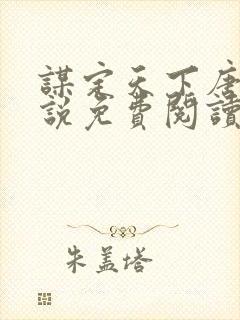 謀定天下唐
説免費閱讀
朱盖塔